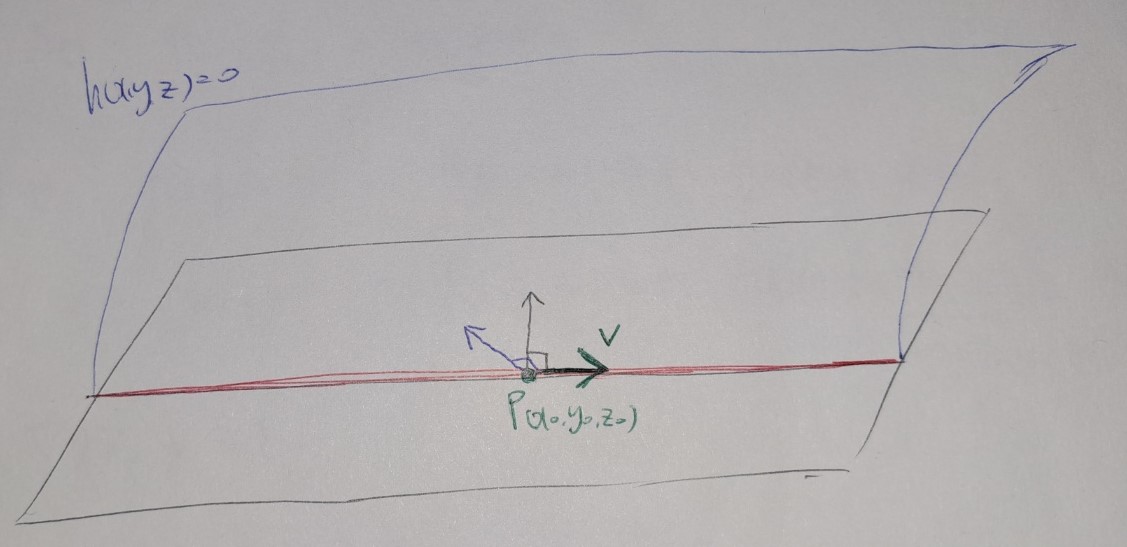 h(x,y,z)=0
V
P(x₀,y₀,z₀)